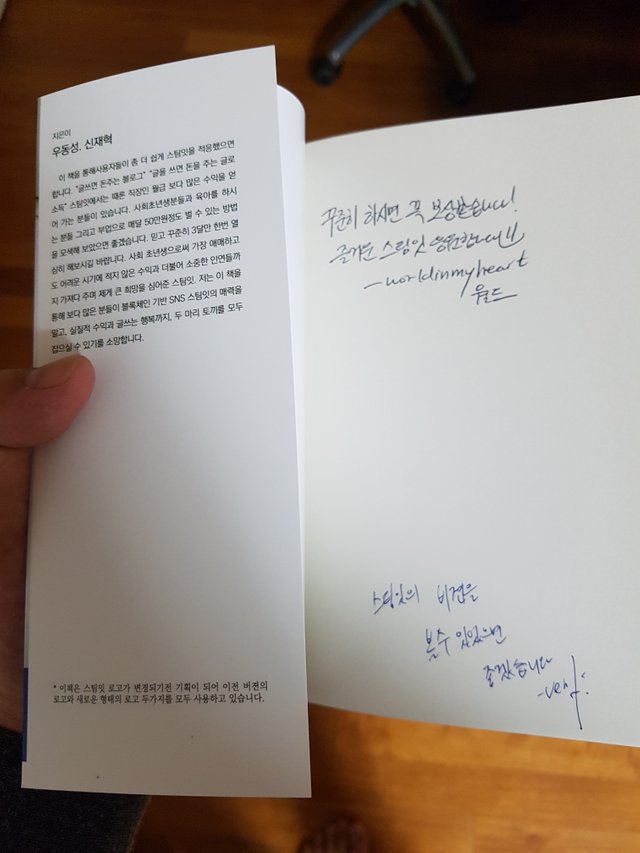 지은이
우동성, 신재혁
이 책을 통해사용자들이 좀 더 쉽게 스팀잇을 적응했으면
합니다. "글쓰면 돈주는 블로그" "글을 쓰면 돈을 주는 글로
소득" 스팀잇에서는 때론 직장인 월급 보다 많은 수익을 얻
어 가는 분들이 있습니다. 사회초년생분들과 육아를 하시
는 분들 그리고 부업으로 매달 50만원정도 벌 수 있는 방법
을 모색해 보았으면 좋겠습니다. 믿고 꾸준히 3달만 한번 열
심히 해보시길 바랍니다. 사회 초년생으로써 가장 애매하고
도 어려운 시기에 적지 않은 수익과 더불어 소중한 인연들까
지 가져다 주며 제게 큰 희망을 심어준 스팀잇. 저는 이 책을
통해 보다 많은 분들이 블록체인 기반 SNS 스팀잇의 매력을
알고, 실질적 수익과 글쓰는 행복까지, 두 마리 토끼를 모두
잡으실 수 있기를 소망합니다.
* 이책은 스팀잇 로고가 변경되기전 기획이 되어 이전 버젼의
로고와 새로운 형태의 로고 두가지를 모두 사용하고 있습니다.
꾸준히 하시면 꼭 보상받습니다!
즐거운 스팀잇 응원합니다!!
-worldinmyheart
월드
스팀잇의 비젼을
볼수 있었으면
좋겠습니다